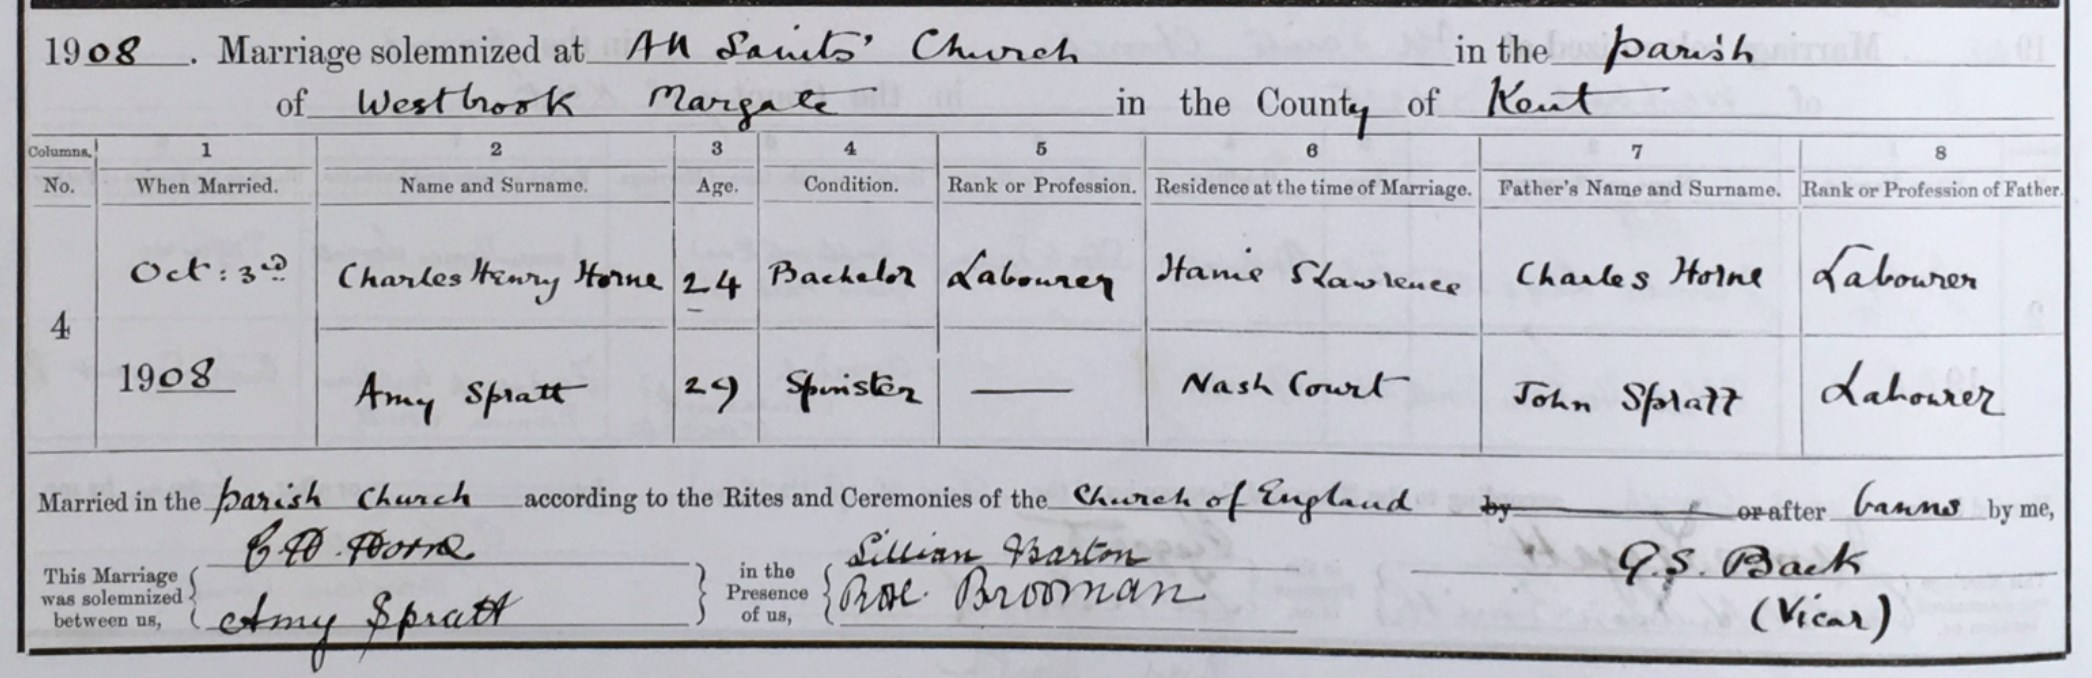 1908. Marriage solemnized at All Saints' Church in the parish
of Westbrook Margate in the County of Kent
Columns, 1 2 3 4 5 6 7 8
No. When Married. Name and Surname. Age. Condition. Rank or Profession. Residence at the time of Marriage. Father's Name and Surname. Rank or Profession of Father.
Oct: 3rd Charles Henry Horne 24 Bachelor Labourer St Lawrence Charles Horne Labourer
4
1908 Amy Spratt 29 Spinster — Nash Court John Spratt Labourer
Married in the parish Church according to the Rites and Ceremonies of the Church of England by or after banns by me,
C. H. Horne Lillian Barton G. S. Back
This Marriage was solemnized between us, Amy Spratt in the Presence of us, Brooman (Vicar)